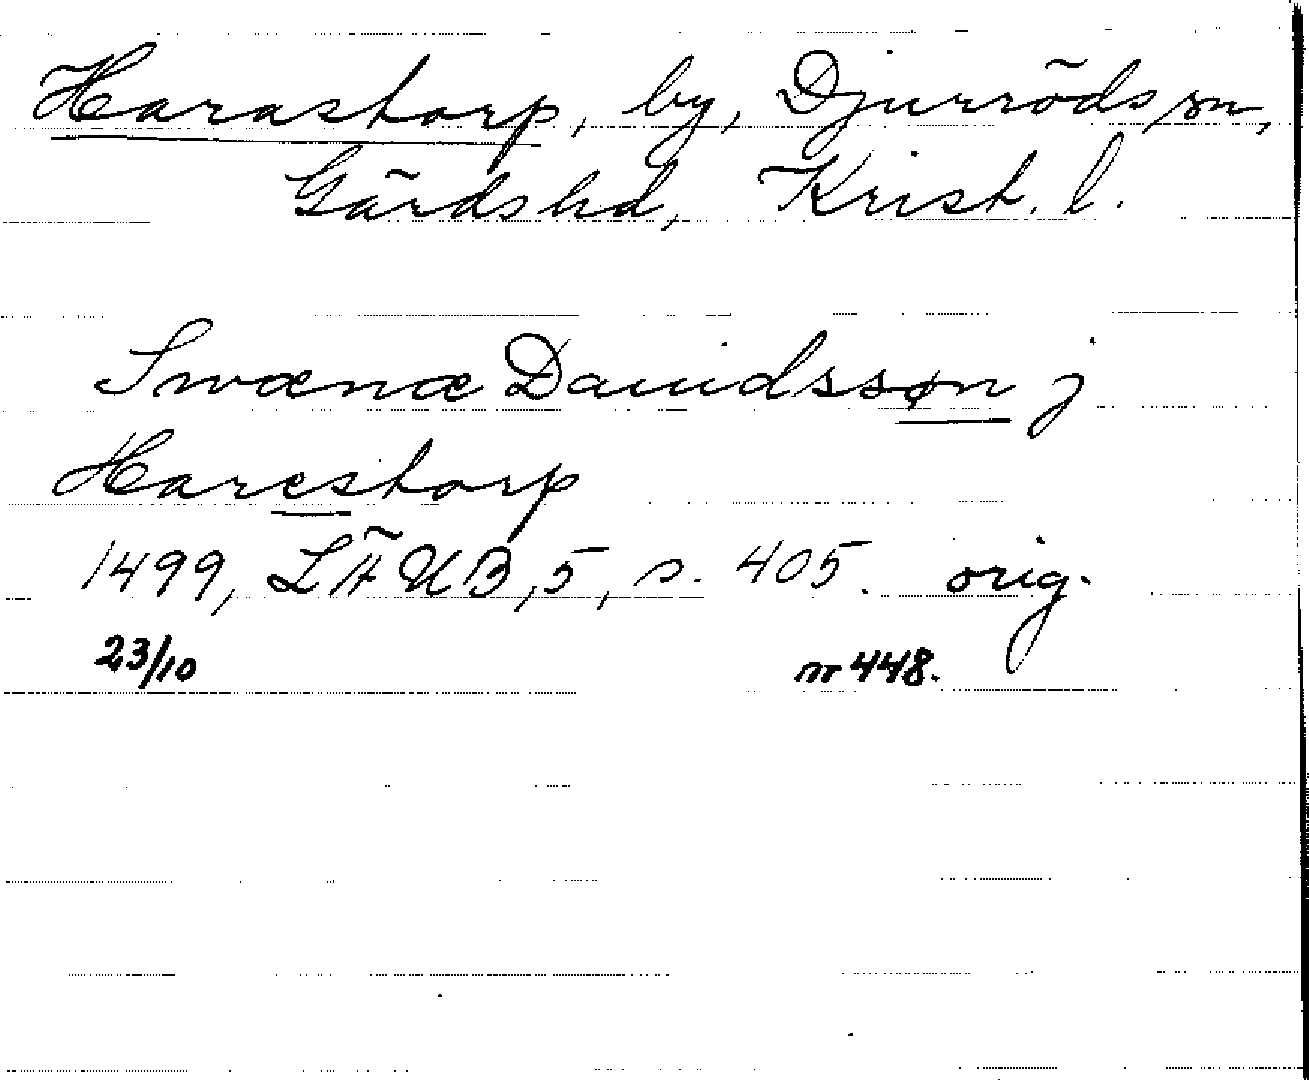 Harastorp, by, Djurröds sn,
Gärds hd, Krist. l.
Swænæ Dauidssøn j
Harestorp
1499, LÄUB, 5, s. 405. orig.
23/10 nr 448.